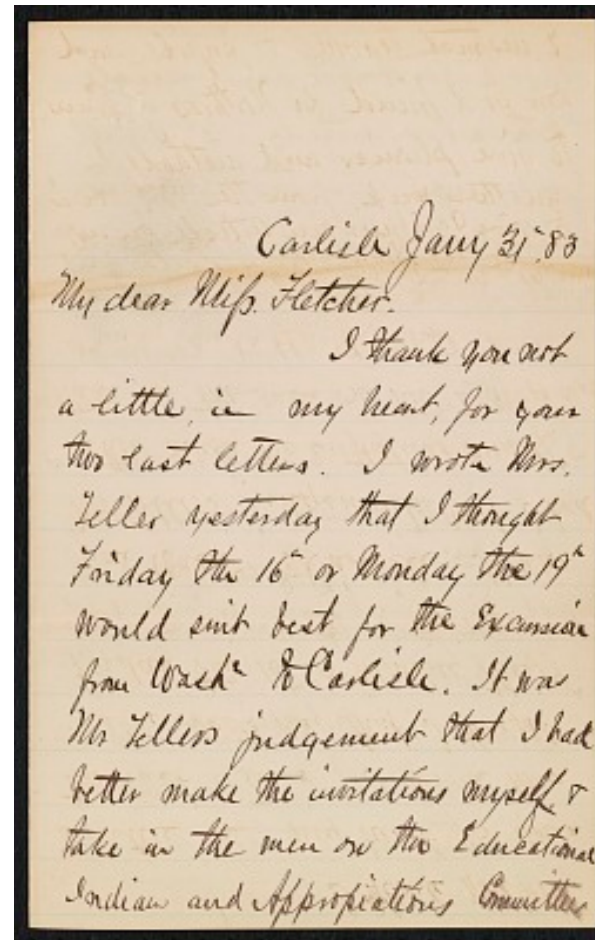 Carlisle Jany 31st, 83
My dear Miss. Fletcher.
I thank you not
a little, in my heart, for your
two last letters. I wrote Mrs.
Teller yesterday that I thought
Friday the 16th or Monday the 19th
would suit best for the Excursion
from Washn to Carlisle. It was
Mr Tellers judgement that I had
better make the invitations myself &
take in the men on the Educational
Indian and Appropiations Committees